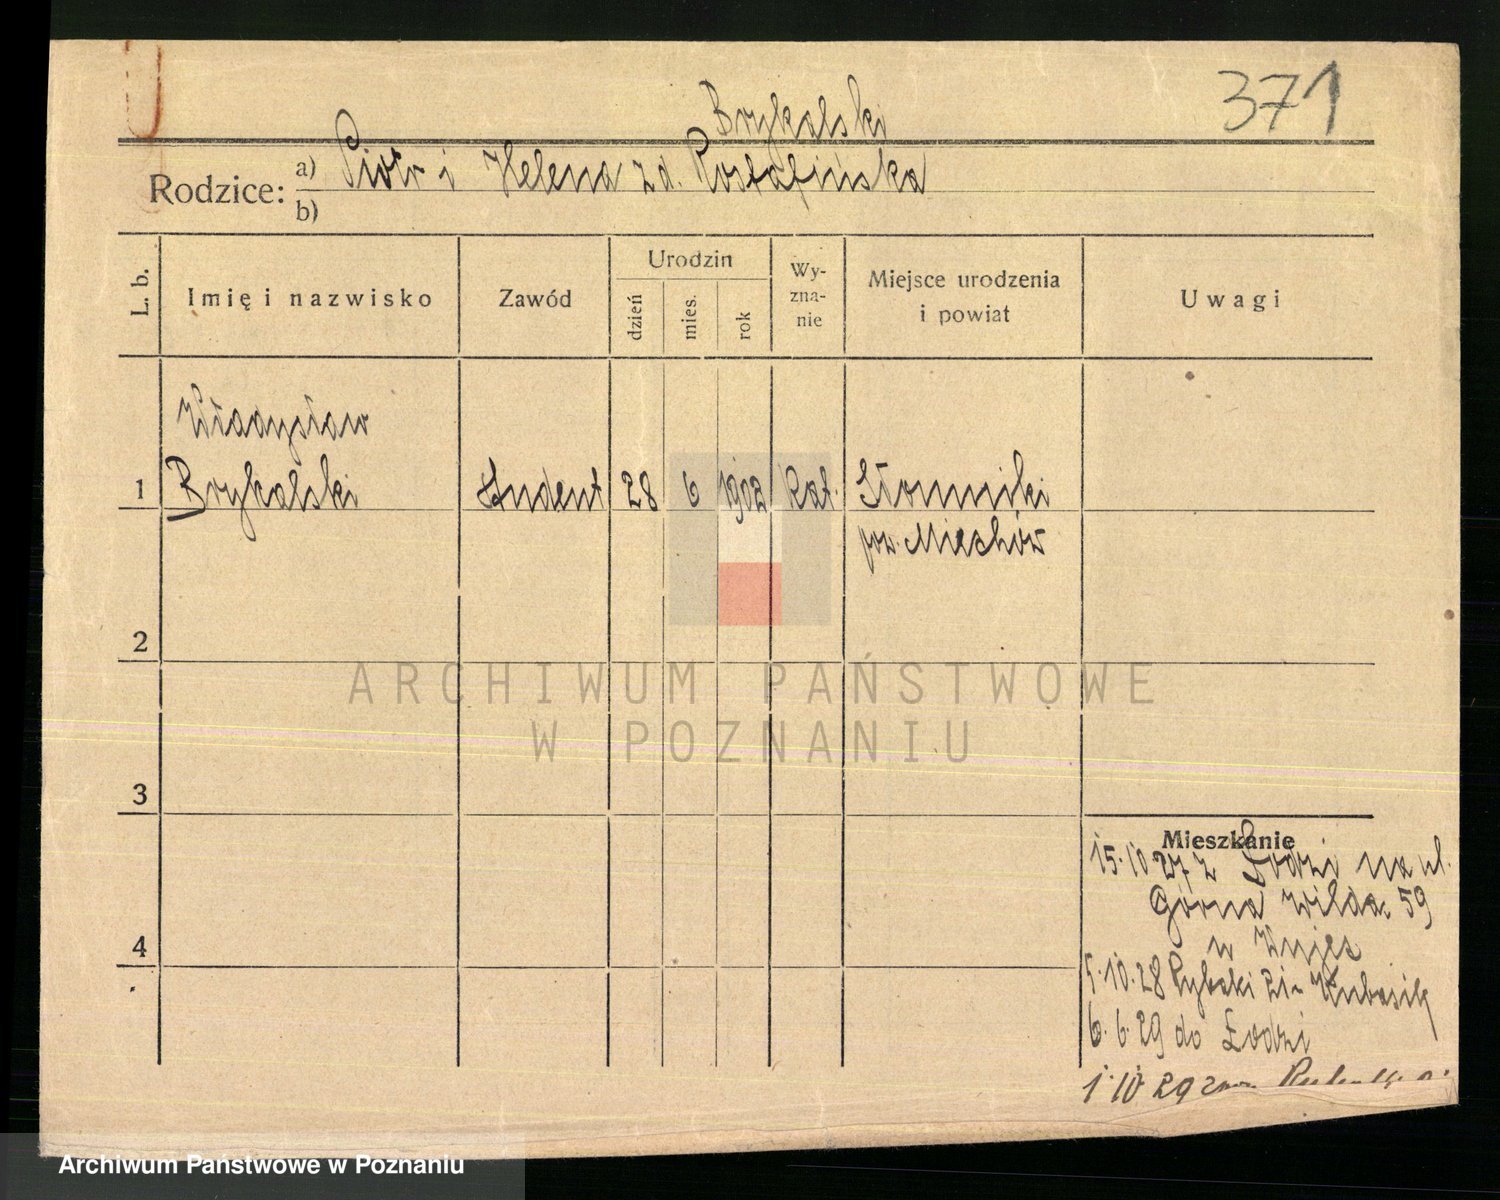 371
Brykalski
Rodzice: a) Piotr i Helena zd. Rostafińska
b)
L. b.
Imię i nazwisko
Zawód
Urodzin
dzień
mies.
rok
Wy-
zna-
nie
Miejsce urodzenia
i powiat
Uwagi
Władysław
1 Brykalski Student 28 6 1902 Kat. Słomniki
pow. Miechów
2
3
4
Mieszkanie
15.10.27 z Łodzi na ul.
Górna Wilda 59
w
5.10.28 Rybaki 21 Kubasik
6.6.29 do Łodzi
1.10 29
ARCHIWUM PAŃSTWOWE
W POZNANIU
Archiwum Państwowe w Poznaniu